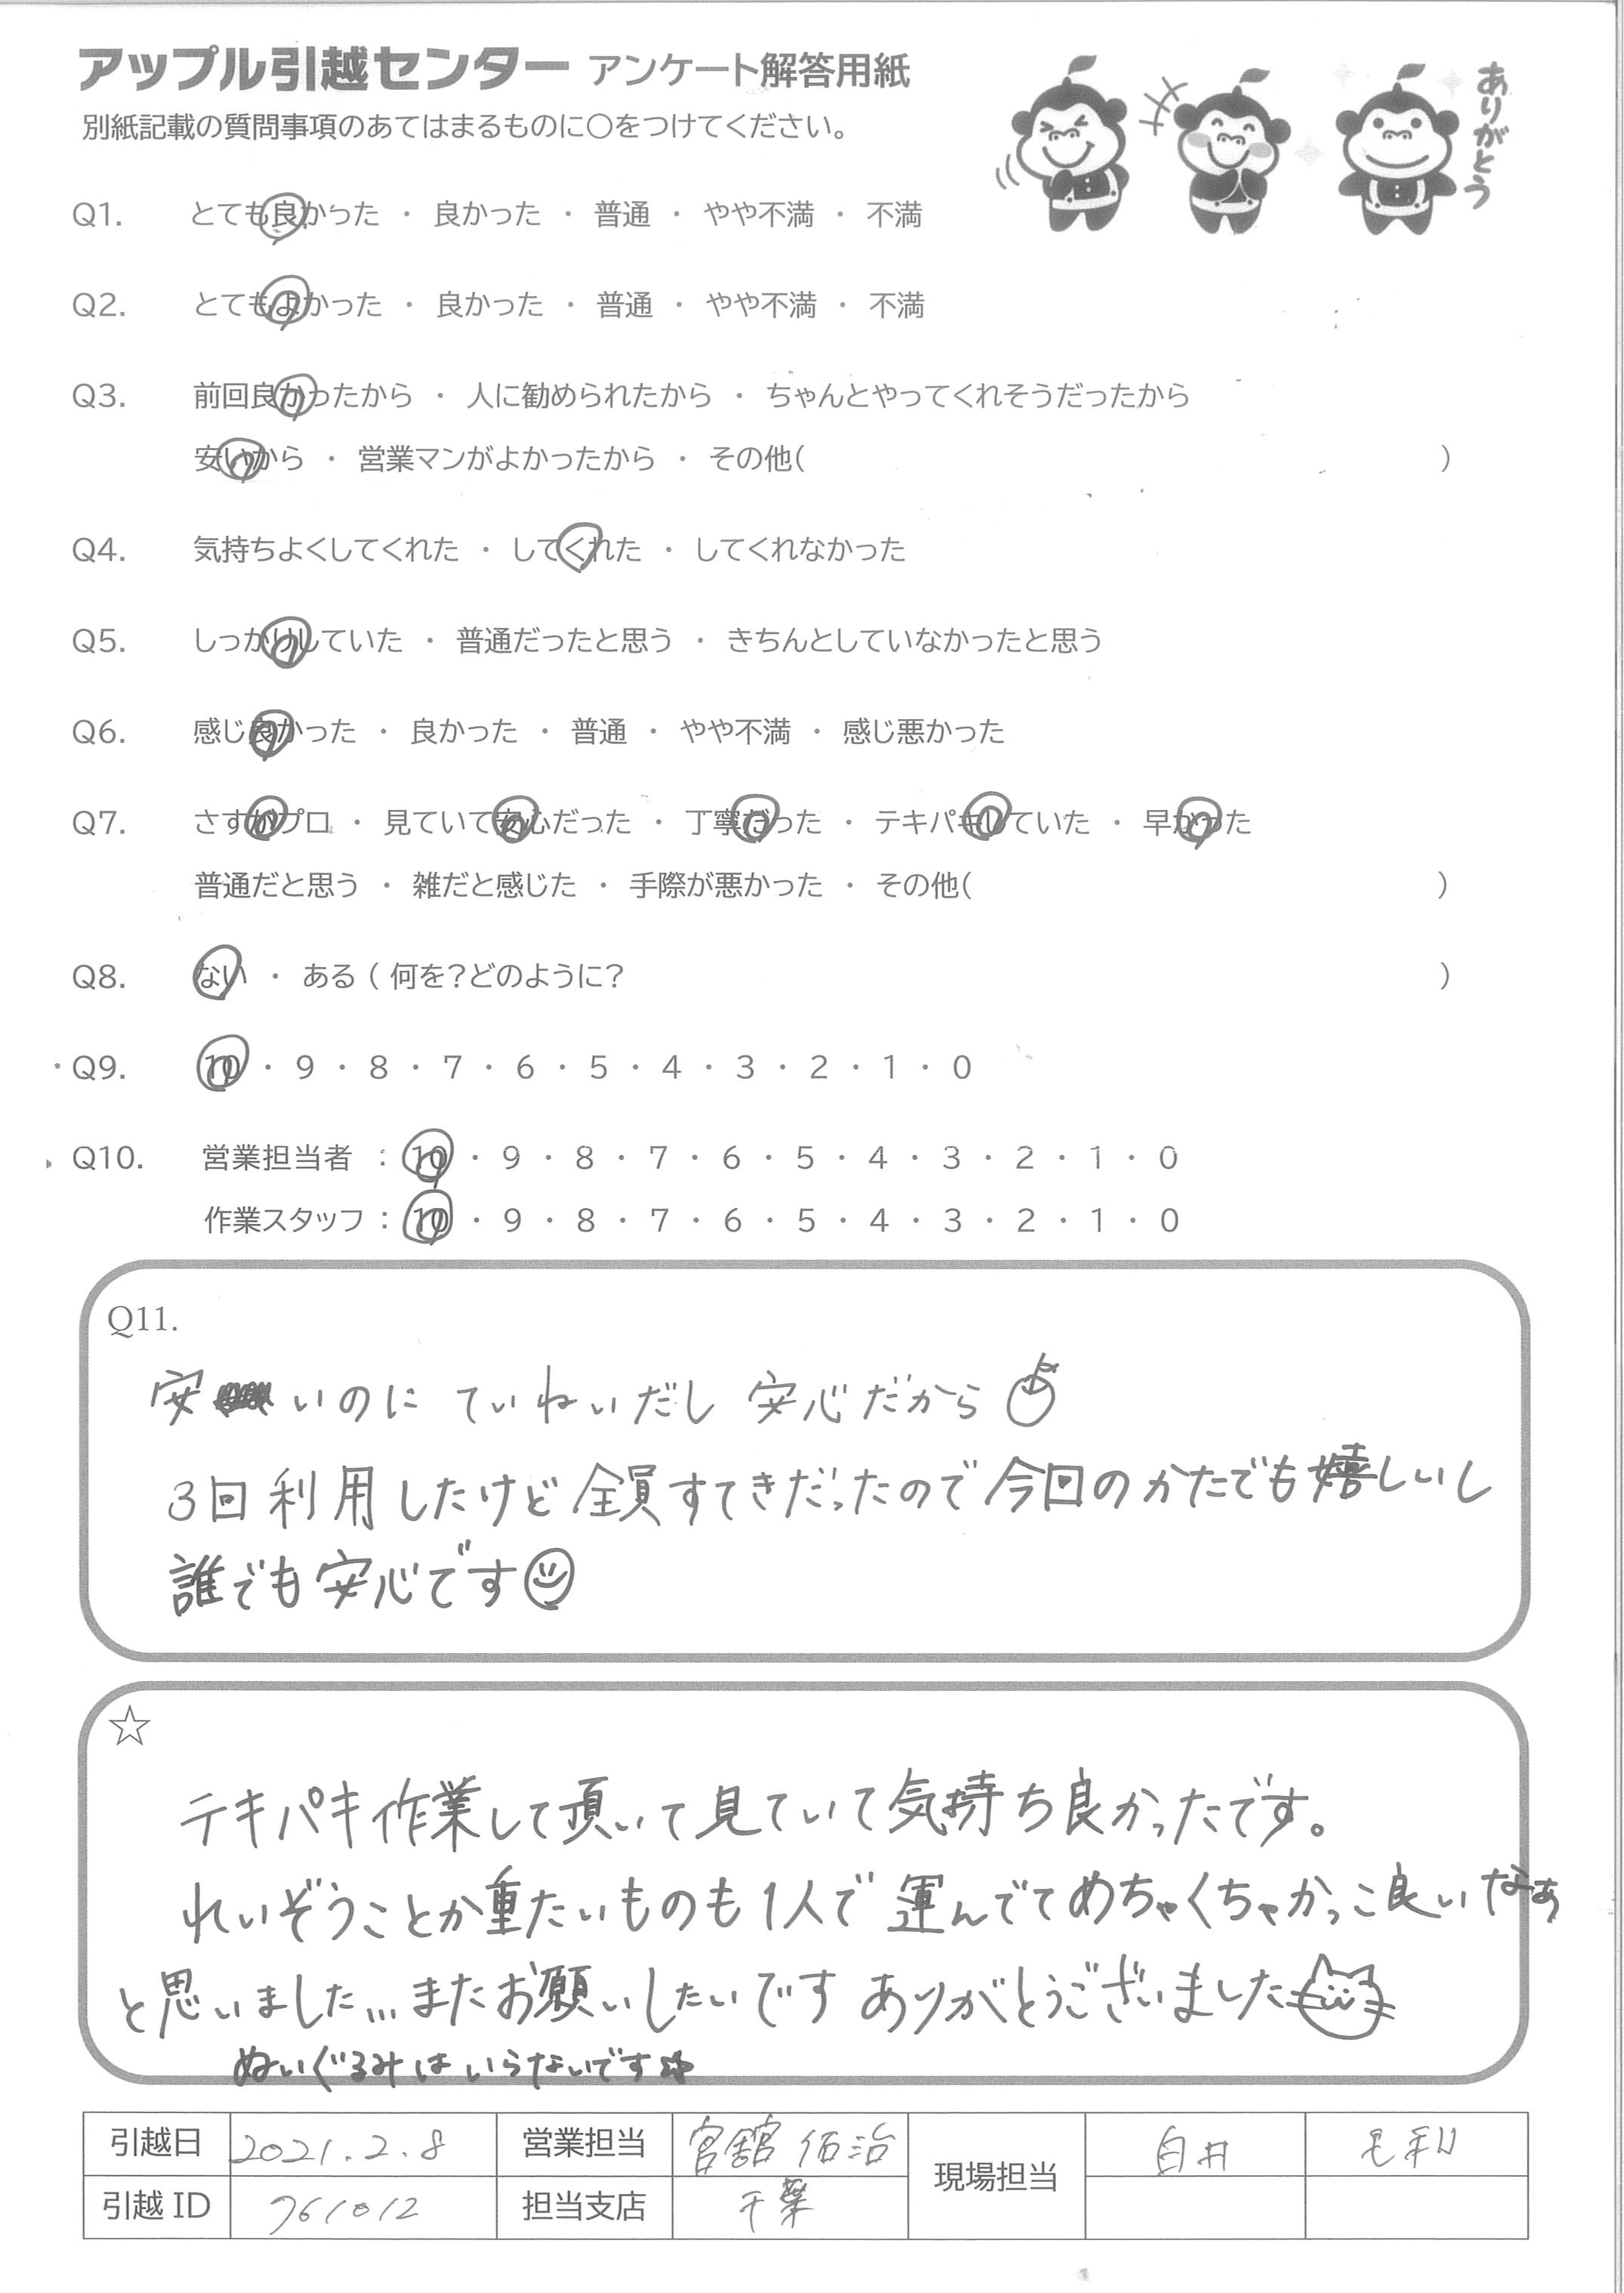 アップル引越センター アンケート解答用紙
別紙記載の質問事項のあてはまるものに○をつけてください。
ありがとう
Q1. とても良かった ・ 良かった ・ 普通 ・ やや不満 ・ 不満
Q2. とてもよかった ・ 良かった ・ 普通 ・ やや不満 ・ 不満
Q3. 前回良かったから ・ 人に勧められたから ・ ちゃんとやってくれそうだったから
安いから ・ 営業マンがよかったから ・ その他( )
Q4. 気持ちよくしてくれた ・ してくれた ・ してくれなかった
Q5. しっかりしていた ・ 普通だったと思う ・ きちんとしていなかったと思う
Q6. 感じ良かった ・ 良かった ・ 普通 ・ やや不満 ・ 感じ悪かった
Q7. さすがプロ ・ 見ていて安心だった ・ 丁寧だった ・ テキパキしていた ・ 早かった
普通だと思う ・ 雑だと感じた ・ 手際が悪かった ・ その他( )
Q8. ない ・ ある ( 何を?どのように? )
Q9. 10 ・ 9 ・ 8 ・ 7 ・ 6 ・ 5 ・ 4 ・ 3 ・ 2 ・ 1 ・ 0
Q10. 営業担当者 : 10 ・ 9 ・ 8 ・ 7 ・ 6 ・ 5 ・ 4 ・ 3 ・ 2 ・ 1 ・ 0
作業スタッフ : 10 ・ 9 ・ 8 ・ 7 ・ 6 ・ 5 ・ 4 ・ 3 ・ 2 ・ 1 ・ 0
Q11.
安いのに ていねいだし 安心だから
3回利用したけど 全員すてきだったので 今回のかたでも嬉しいし
誰でも安心です
☆
テキパキ作業して頂いて見ていて気持ち良かったです。
れいぞうことか重たいものも1人で 運んでてめちゃくちゃかっこ良いなぁ
と思いました…またお願いしたいです ありがとうございました
ぬいぐるみはいらないです☆
引越日 2021.2.8 営業担当 宮舘 佑治 現場担当 白井 毛利
引越ID 761012 担当支店 千葉